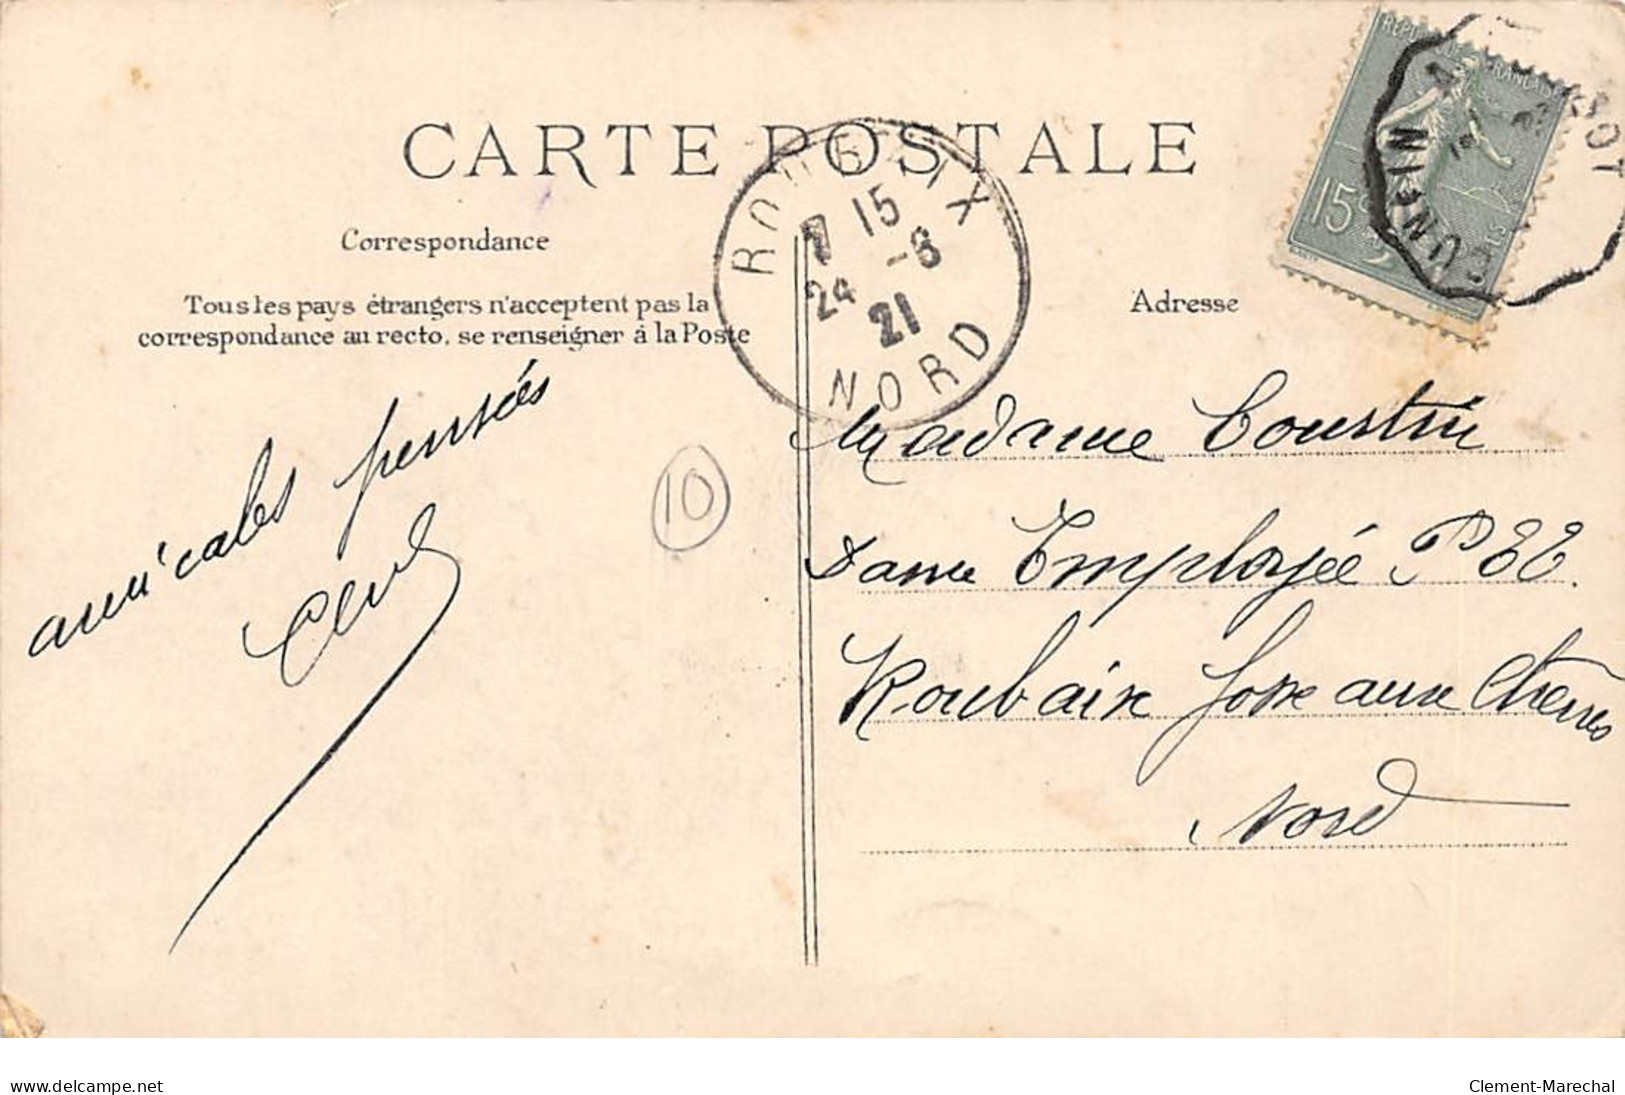 CARTE POSTALE
Correspondance
Tous les pays étrangers n'acceptent pas la
correspondance au recto, se renseigner à la Poste
Adresse
ROUBAIX
7 15
24 -6
21
NORD
RÉPUBLIQUE FRANÇAISE
15c
POSTES
amicales pensées
10
Madame Coustin
Dame Employée P E E.
Roubaix fosse aux Chênes
Nord
www.delcampe.net
Clement-Marechal